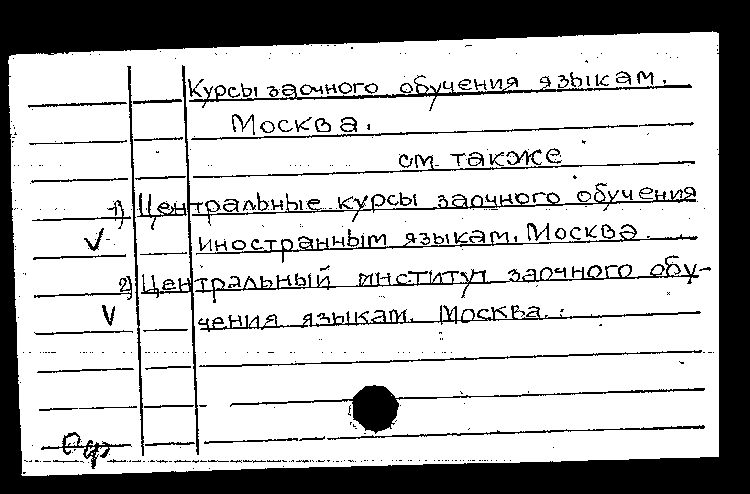 Курсы заочного обучения языкам.
Москва.
см. также
1) Центральные курсы заочного обучения
иностранным языкам. Москва.
2) Центральный институт заочного обу-
чения языкам. Москва.